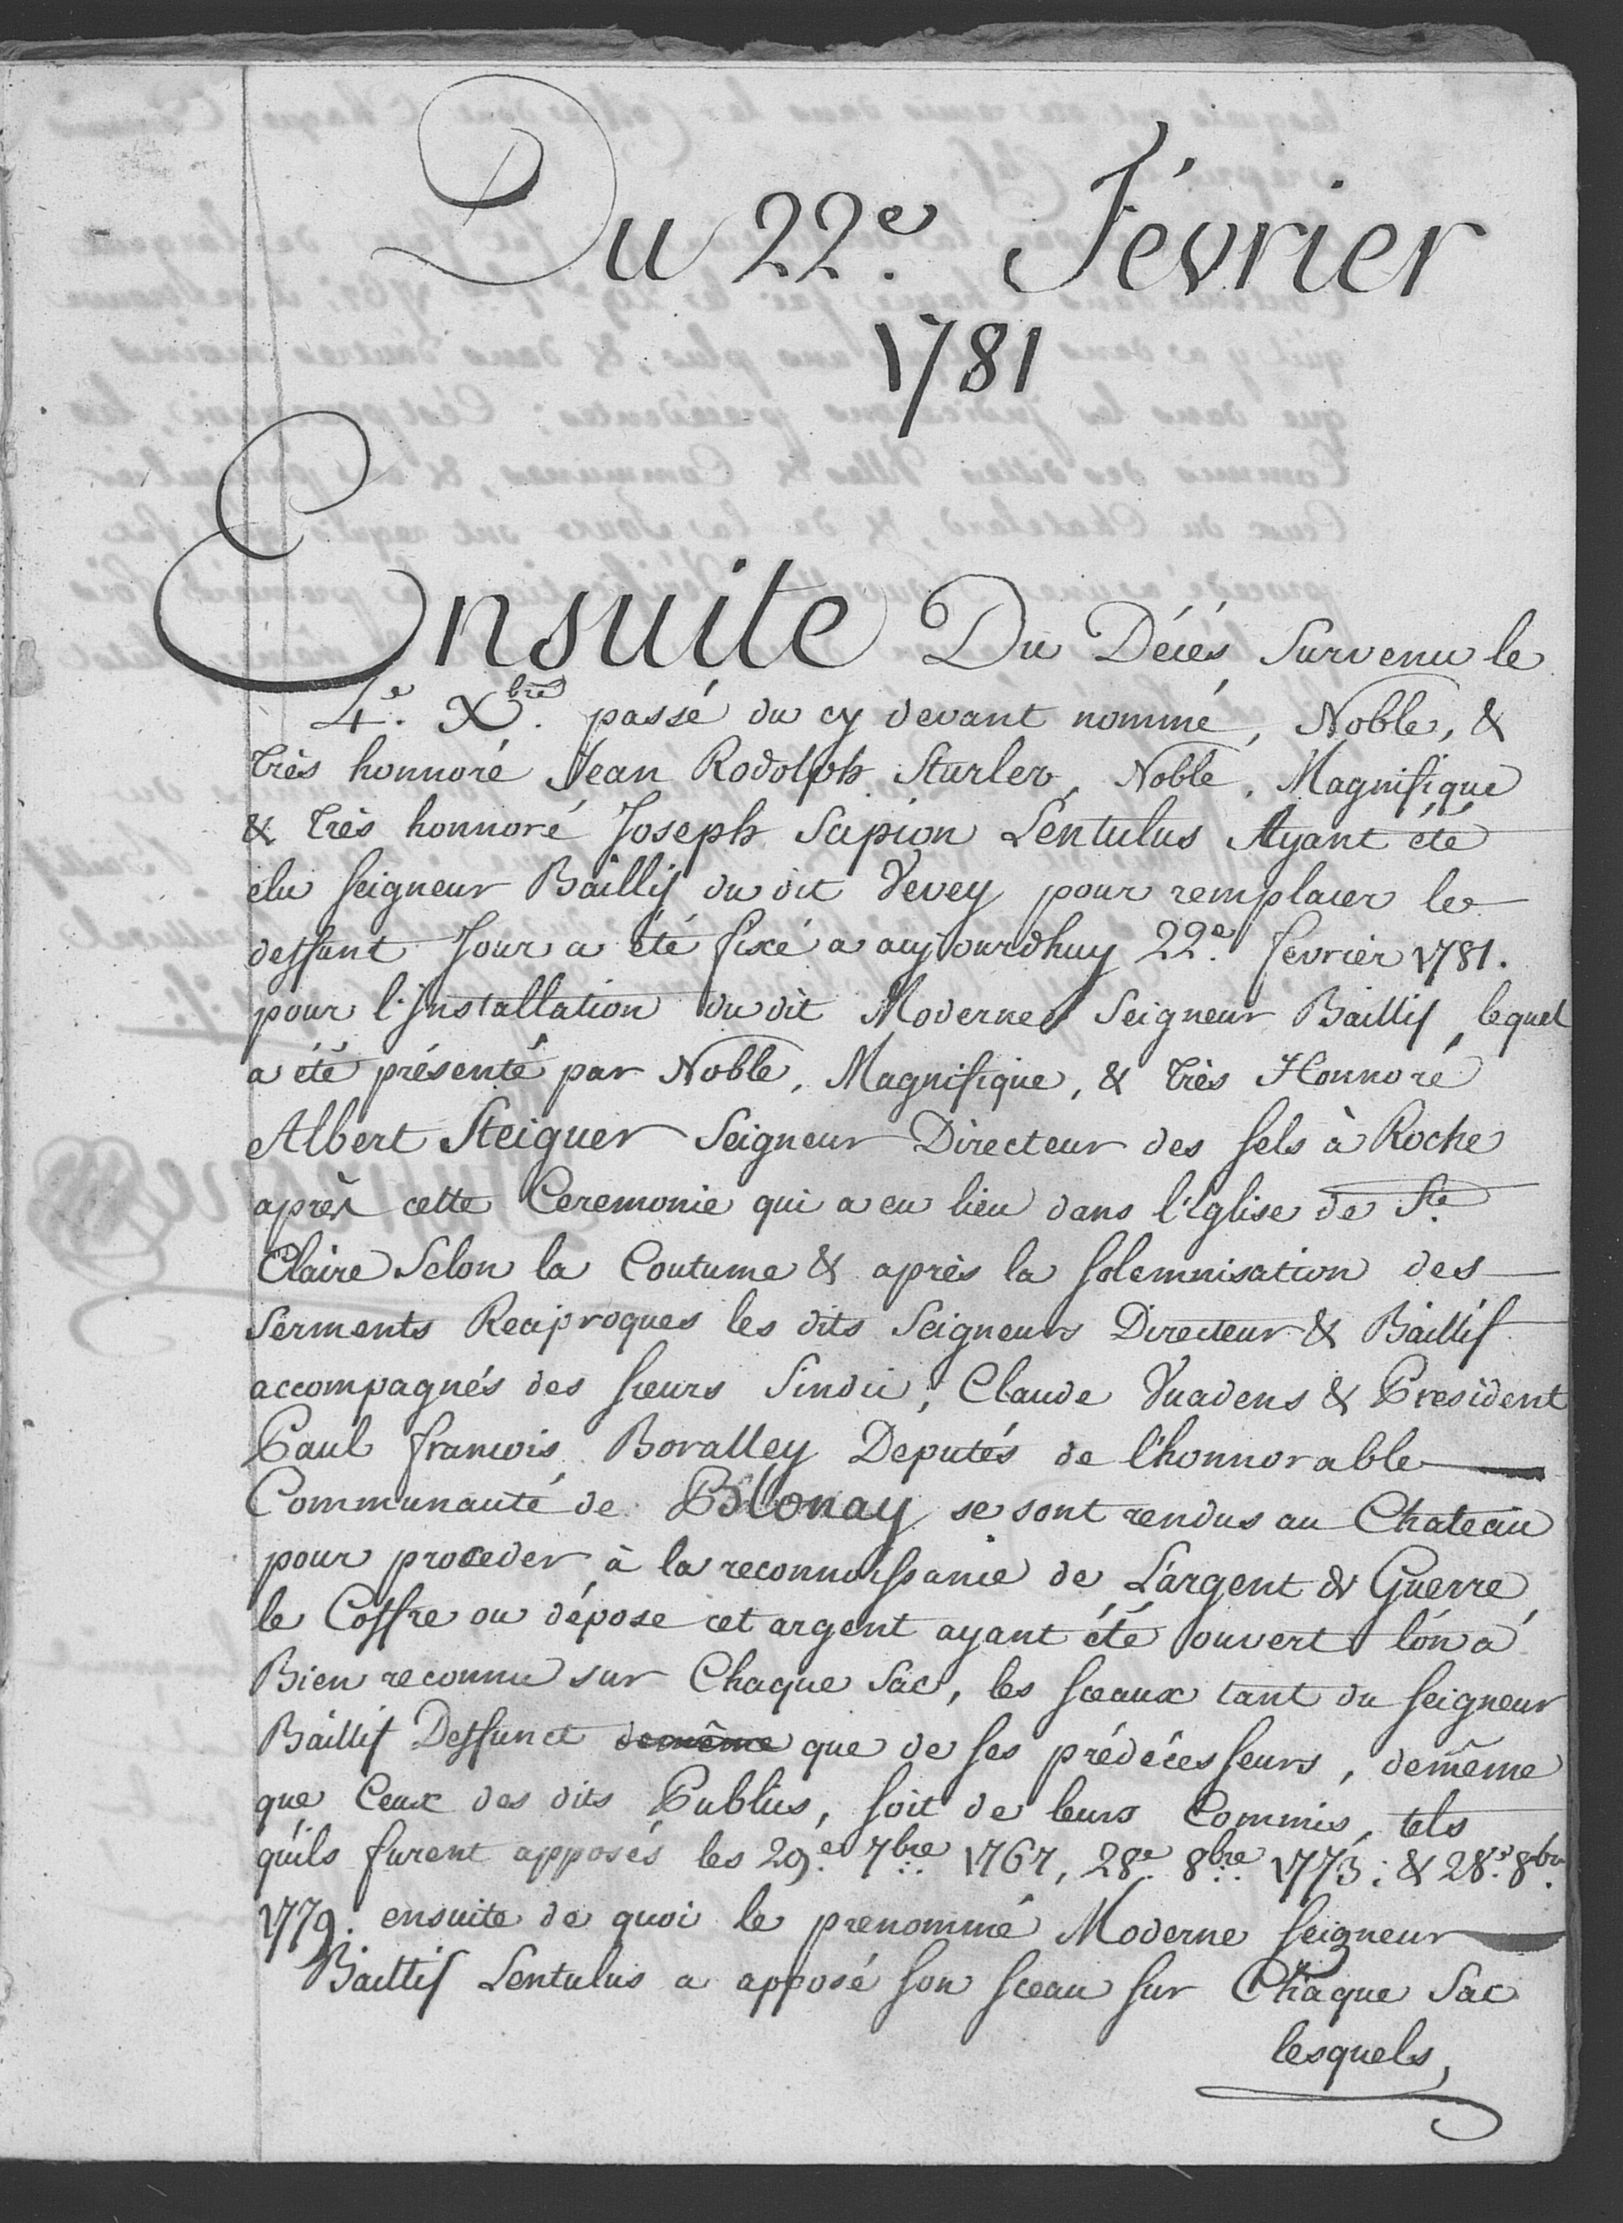 Du 22.e Février
1781
Ensuite Du Décés Survenu le
4.e Xbre. passé du cy devant nommé, Noble, &
très honnoré Jean Rodolph Sturler, Noble, Magnifique
& très honnoré Joseph Scipion Lentulus Ayant été
elu Seigneur Baillif du dit Vevey pour remplacer le
deffunt Jour a été fixé a aujourdhuy 22.e fevrier 1781.
pour l'Installation du dit Moderne Seigneur Baillif, lequel
a été présenté par Noble, Magnifique, & très Honnoré
Albert Steiguer Seigneur Directeur des Sels à Roche
après cette Ceremonie qui a eu lieu dans l'Eglise de Ste
Claire Selon la Coutume & après la Solemnisation des
Serments Reciproques les dits Seigneurs Directeur & Baillif
accompagnés des Sieurs Sindic, Claude Vuadens & President
Paul francois Boralley Deputés de l'honnorable
Communauté de Blonay se sont rendus au Chateau
pour proceder à la reconnoissance de L'argent de Guerre,
le Coffre ou dépose cet argent ayant été ouvert l'on a
Bien reconnu sur Chaque Sac, les Sceaux tant du Seigneur
Baillif Deffunct demême que de ses prédécesseurs, demême
que Ceux des dits Publics, Soit de leurs Commis, tels
quils furent apposés les 29.e 7bre 1767, 28.e 8bre 1773: & 28.e 8bre
1779. ensuite de quoi le prenommé Moderne Seigneur
Baillif Lentulus a apposé Son Sceau Sur Chaque Sac
lesquels,